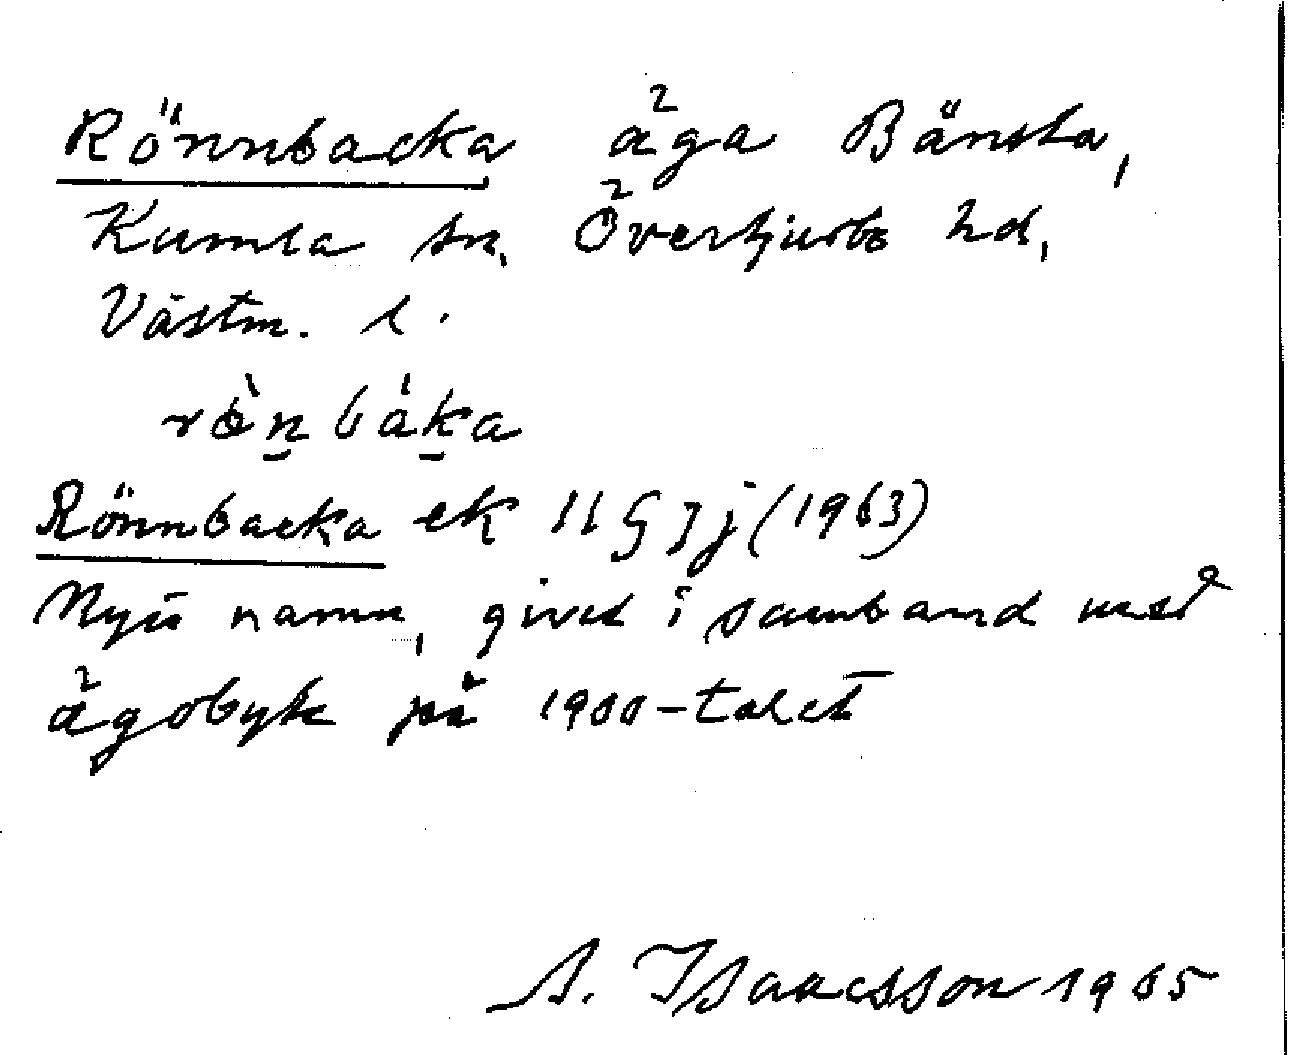 Rönnbacka äga Bänsta,
Kumla sn, Övertjurbo hd,
Västm. l.
rö̀n̠báḵa
Rönnbacka ek 11 G 7 j (1963)
Nytt namn, givet i samband med
ägobyte på 1900-talet
A. Isaacsson 1965